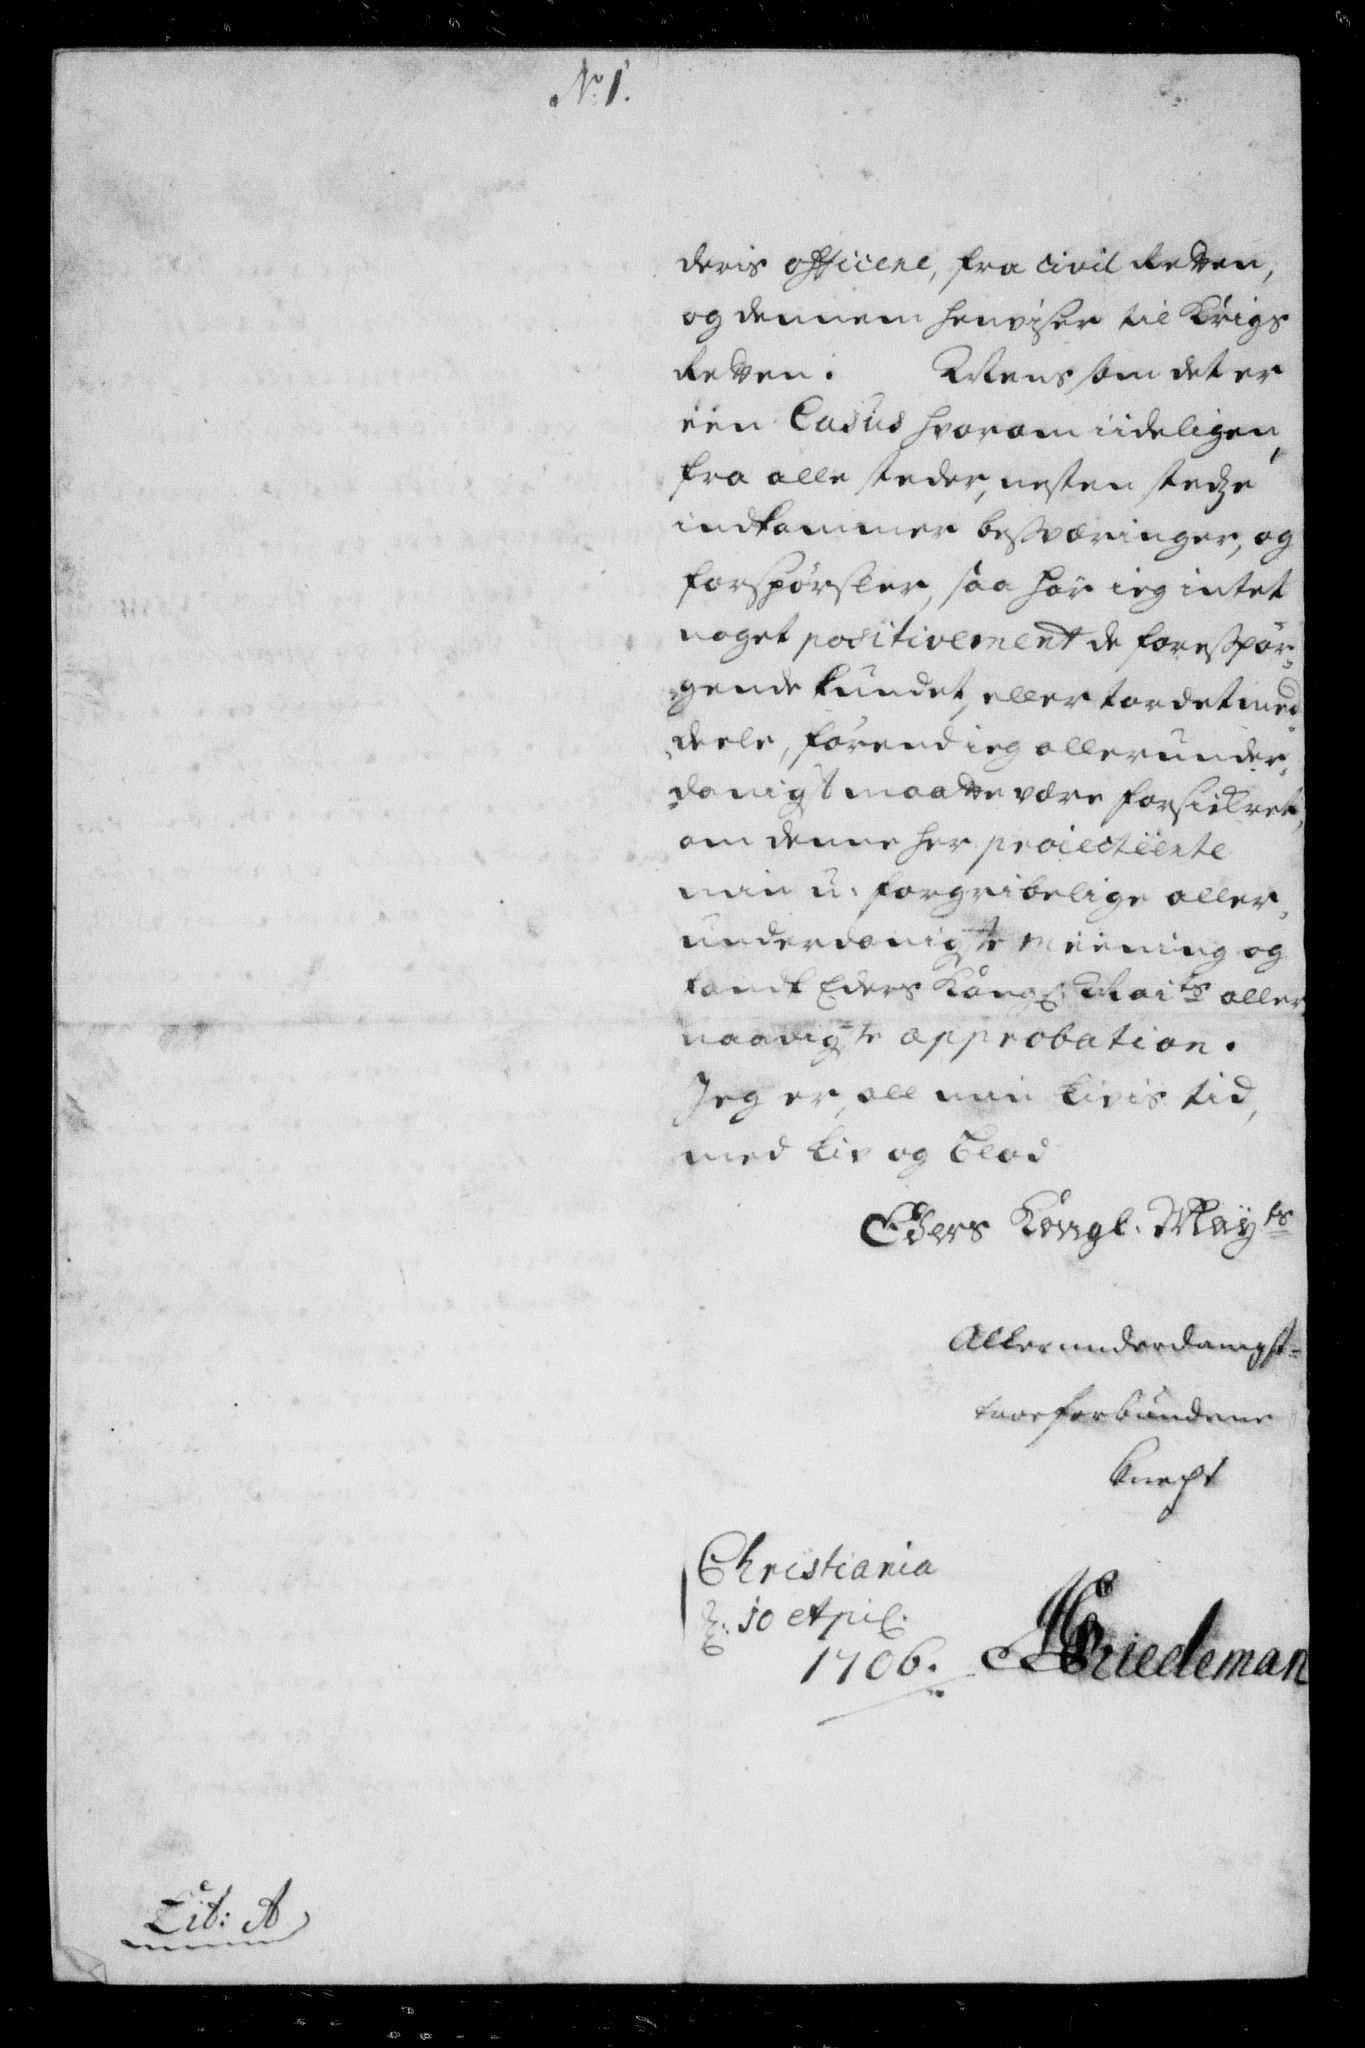 No: 1.
deris officiere, fra civil Retten,
og dennem henviser til Krigs
Retten. Mens som det er
een Casus hvorom iideligen,
fra alle steder, nesten stedze
indkommer besværinger, og
forspørsler, saa har ieg intet
noget positivement de forespør-
gende kundet, eller tordet med-
deele, førend ieg allerunder-
danigst maatte være forsickret,
om denne her proiecteerte
min u-forgribelige aller-
underdanigste meening og
Eders Kongl: Maits aller
naadigste approbation.
Jeg er, all min Livis tid,
med Liv og Blod
Eders Kongl. Mayts
Allerunderdanigst-
troeforbundene
Knecht
Christiania
d: 10 April:
1706.
Lit: A